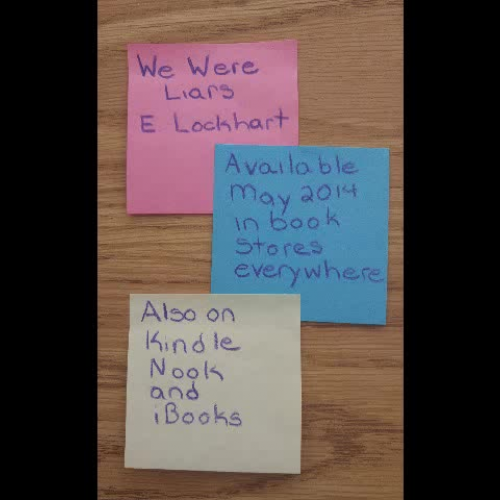 We Were
Liars
E Lockhart
Available
May 2014
in book
Stores
everywhere
Also on
Kindle
Nook
and
iBooks